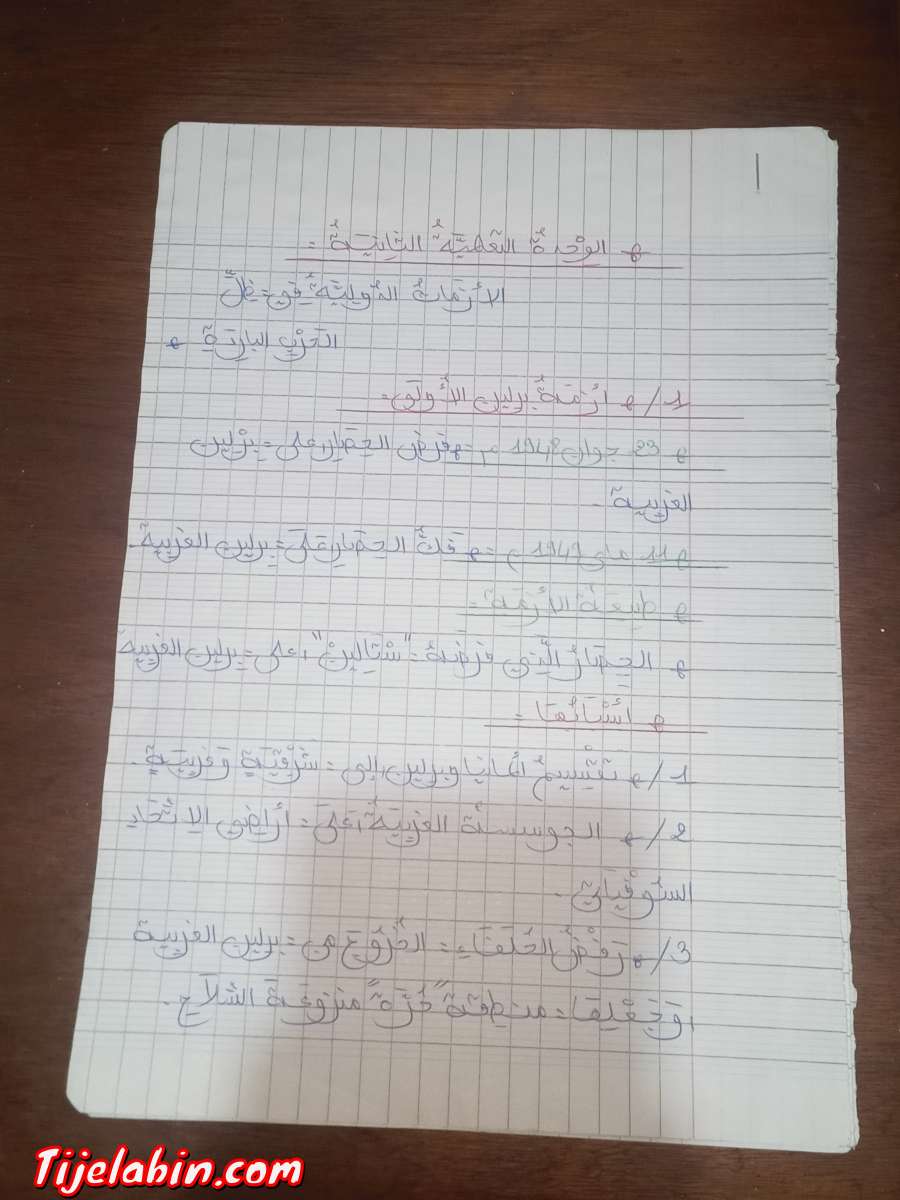 1
الوحدة التعلمية الثانية =
الأزمات الدولية في = ظل
الحرب الباردة
1/ أزمة برلين الأولى =
23 جوان 1948 م = فرض الحصار على = برلين
الغربية.
11 ماي 1949 م = فك الحصار على = برلين الغربية.
طبيعة الأزمة =
الحصار التي فرضه = "ستالين" على = برلين الغربية
أسبابها =
1/ تقسيم ألمانيا وبرلين إلى = شرقية وغربية.
2/ الجوسسة الغربية على = أراضي الاتحاد
السوفياتي.
3/ رفض الحلفاء = الخروج من = برلين الغربية
وجعلها = منطقة "حرة" منزوعة السلاح.
Tijelabin.com